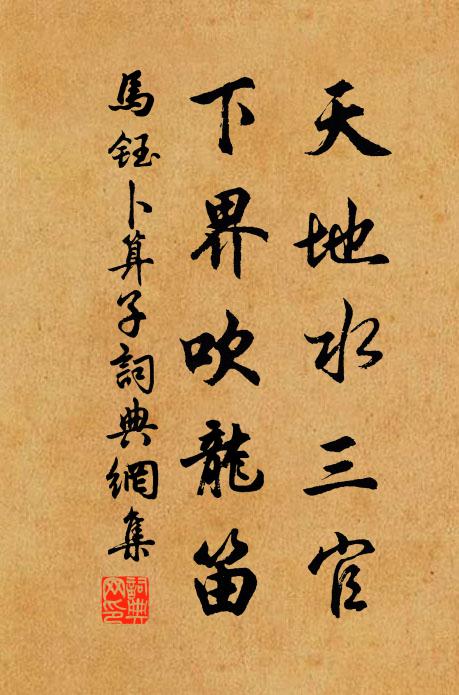 天地水三官
下界吹龍笛
馬鈺卜算子詞典網集
詞典網印